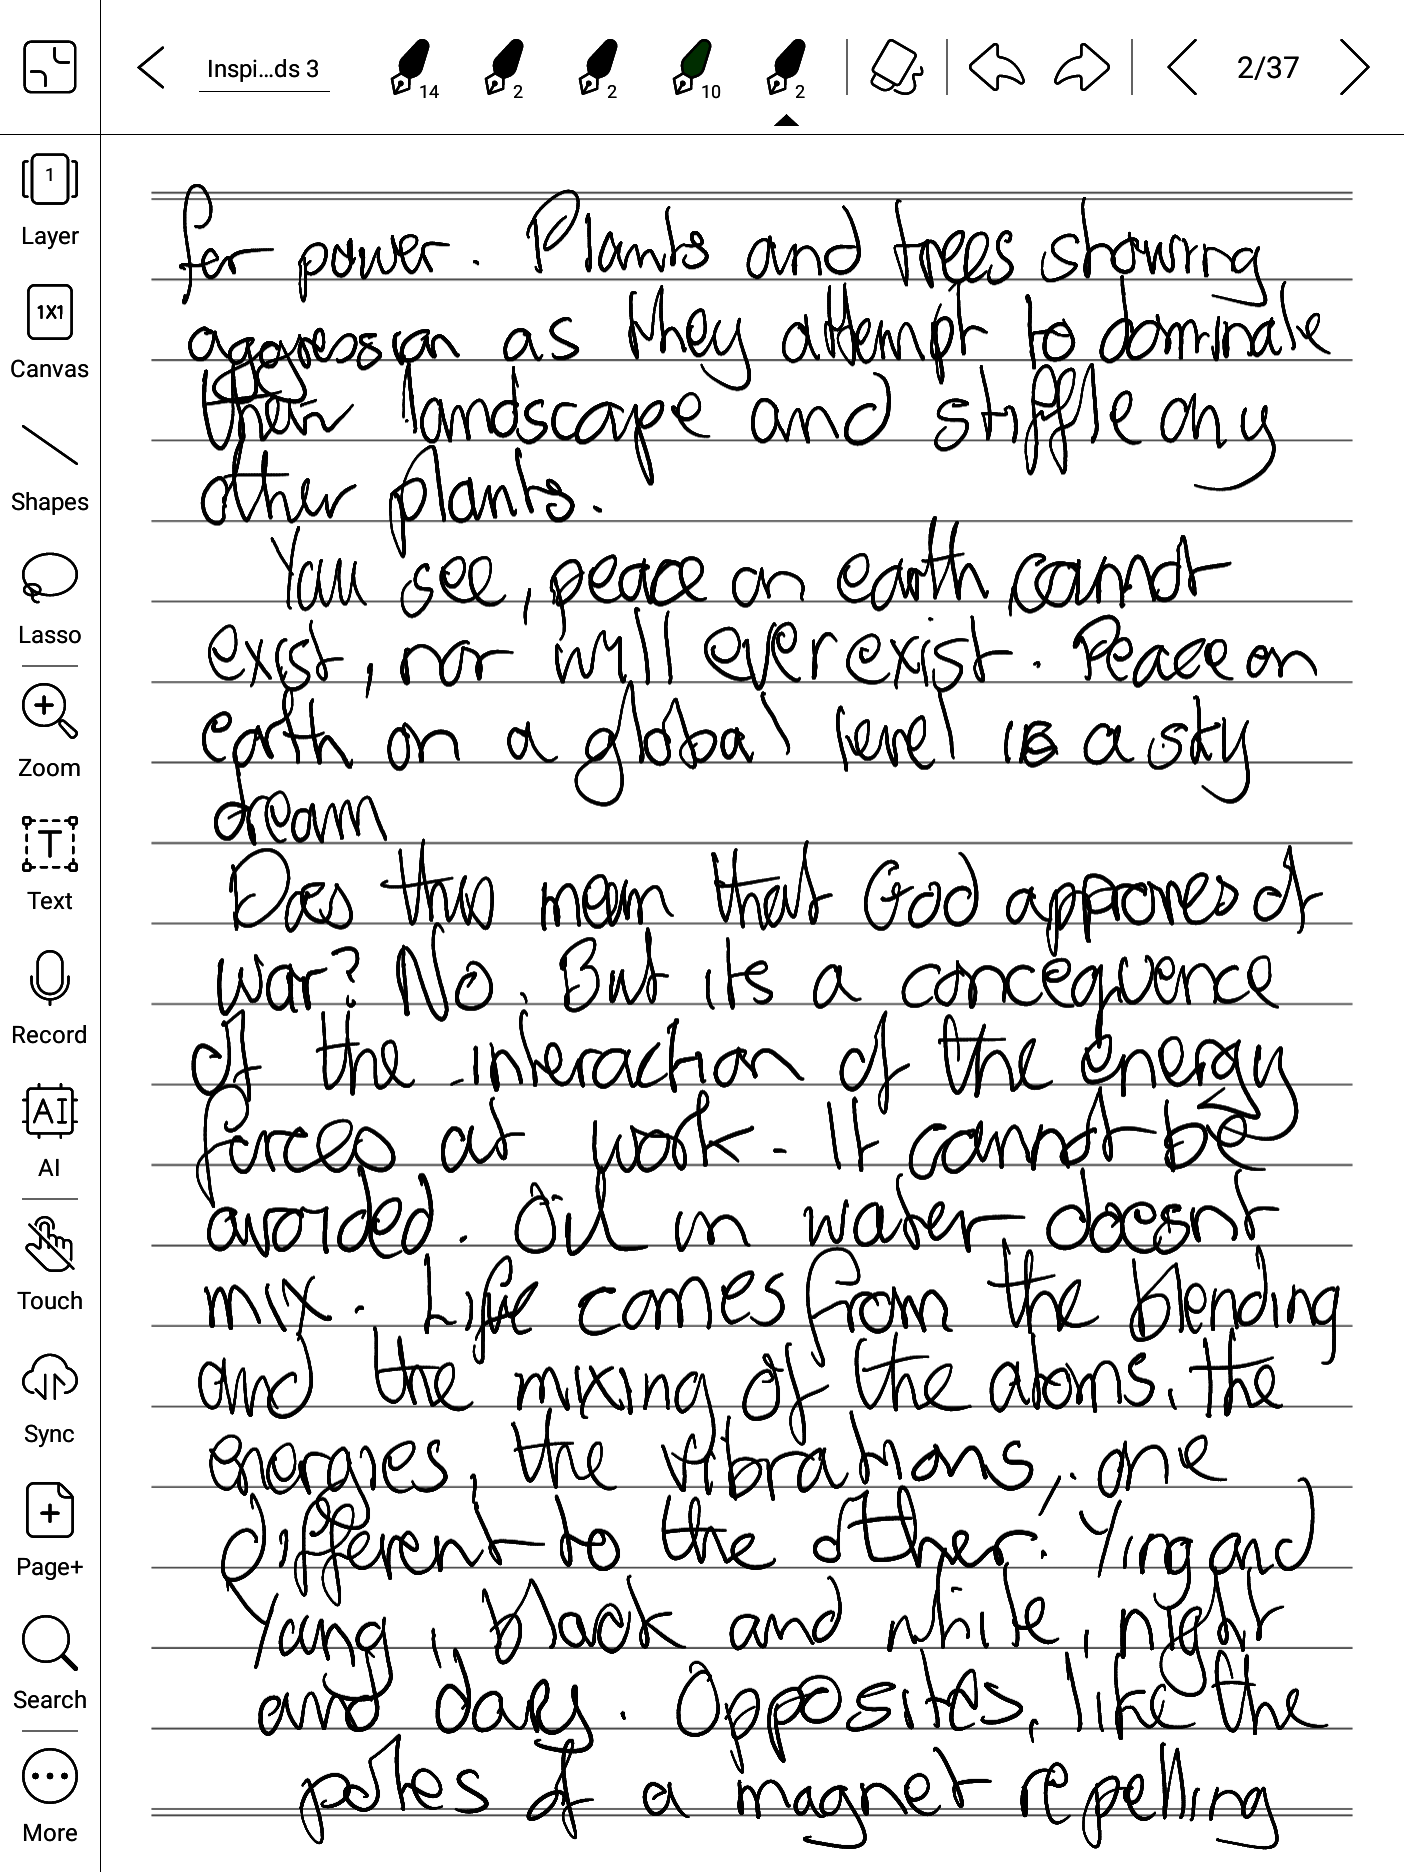 Inspi...ds 3
14
2
2
10
2
2/37
1
Layer
1X1
Canvas
Shapes
Lasso
Zoom
T
Text
Record
AI
AI
Touch
Sync
Page+
Search
More
for power. Plants and trees showing
aggression as they attempt to dominate
their landscape and stiffle any
other plants.
You see, peace on earth cannot
exist, nor will ever exist. Peace on
earth on a global level is a sky
dream
Does this mean that God approves of
war? No. But its a concequence
of the interaction of the energy
forces at work. It cannot be
avoided. Oil in water doesnt
mix. Life comes from the blending
and the mixing of the atoms, the
energies, the vibrations, one
different to the other. Ying and
Yang, black and white, night
and day. Opposites, like the
poles of a magnet repelling